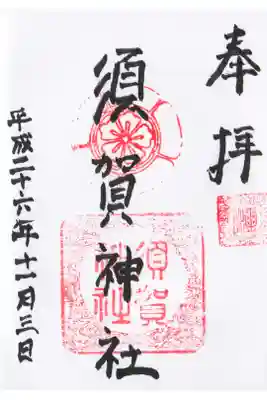 奉拝
須賀神社
平成二十六年十一月三日
須賀
神社